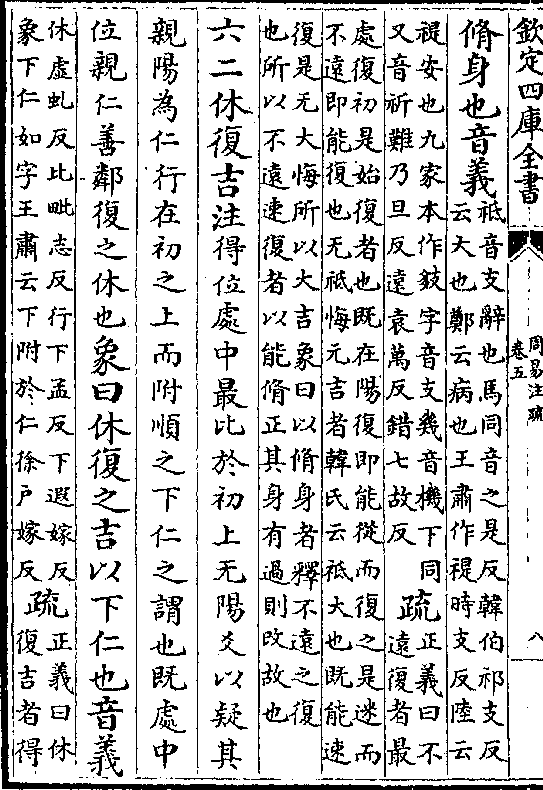 欽定四庫全書
周易注疏
卷五
八
脩身也音義
祗音支辭也馬同音之是反韓伯祁支反
云大也鄭云病也王肅作禔時支反陸云
禔安也九家本作𢻱字音支幾音機下同
又音祈難乃旦反遠袁萬反錯七故反
疏
正義曰不
遠復者最
處復初是始復者也既在陽復即能從而復之是迷而
不遠即能復也无祗悔元吉者韓氏云祗大也既能速
復是无大悔所以大吉象曰以脩身者釋不遠之復
也所以不遠速復者以能脩正其身有過則改故也
六二休復吉注得位處中最比於初上无陽爻以疑其
親陽為仁行在初之上而附順之下仁之謂也既處中
位親仁善鄰復之休也象曰休復之吉以下仁也音義
休虛虬反比毗志反行下孟反下遐嫁反
象下仁如字王肅云下附於仁徐戶嫁反
疏
正義曰休
復吉者得